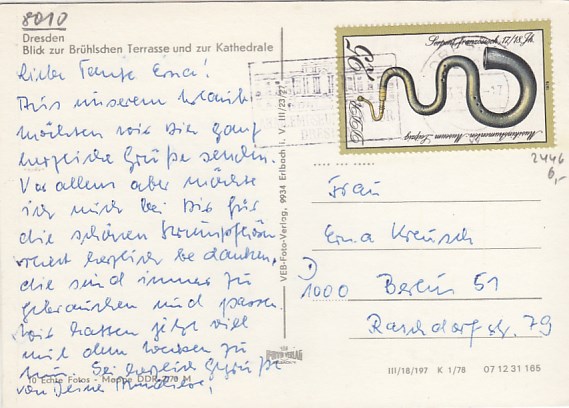 8010
Dresden
Blick zur Brühlschen Terrasse und zur Kathedrale
Liebe Tante Erna!
Aus unserem Urlaub
möchten wir Dir ganz
herzliche Grüße senden.
Vor allem aber möchte
ich mich bei Dir für
die schönen
herzlich bedanken,
die sind immer zu
gebrauchen und passen.
Wir hatten jetzt viel
mit dem zu
tun. Sei herzlich gegrüßt
von Deiner
10 Echte Fotos - Mappe DDR 2,70 M
VEB-Foto-Verlag, 9934 Erlbach i. V. III/23/27
Serpent, französisch, 17./18. Jh.
Musikinstrumenten-Museum Leipzig
DDR
2446
6,-
Frau
Erna Kreusch
1000 Berlin 51
Raschdorffstr. 79
III/18/197 K 1/78 07 12 31 165